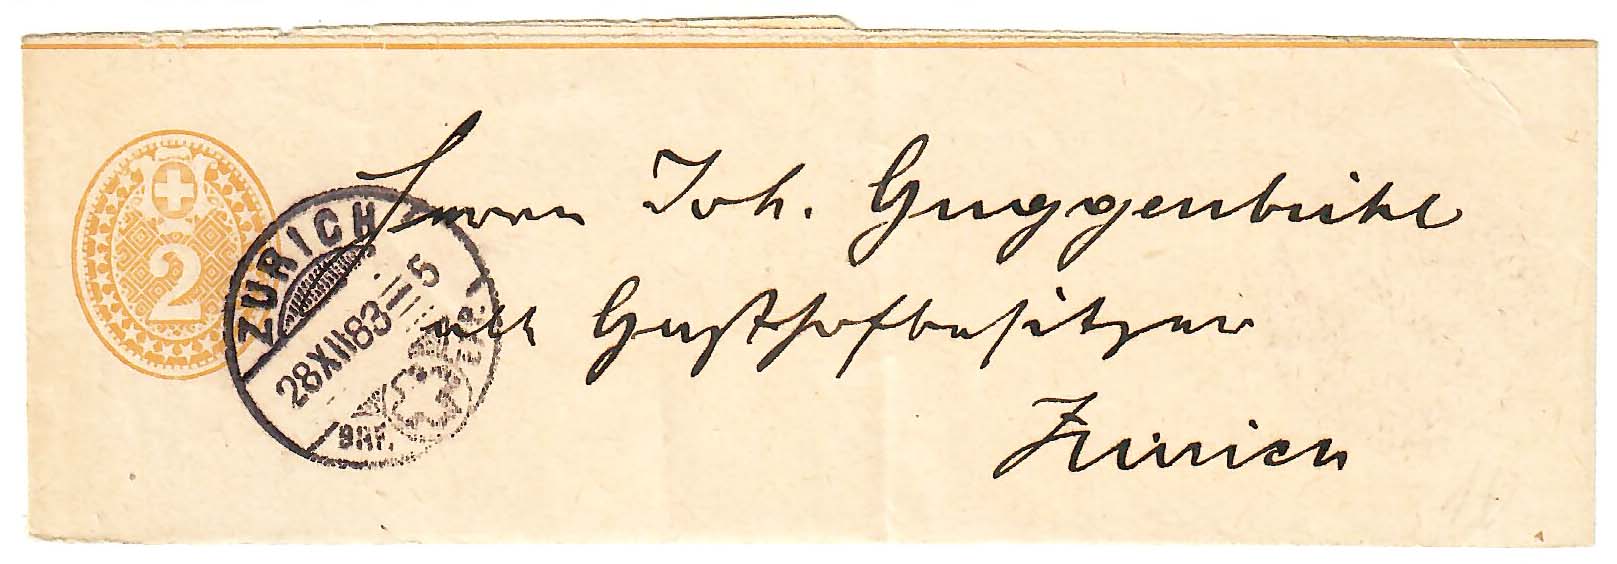 2
ZÜRICH
28 XII 83 – 5
BRF.
Herrn Joh. Guggenbühl
alt Gasthofbesitzer
Zürich